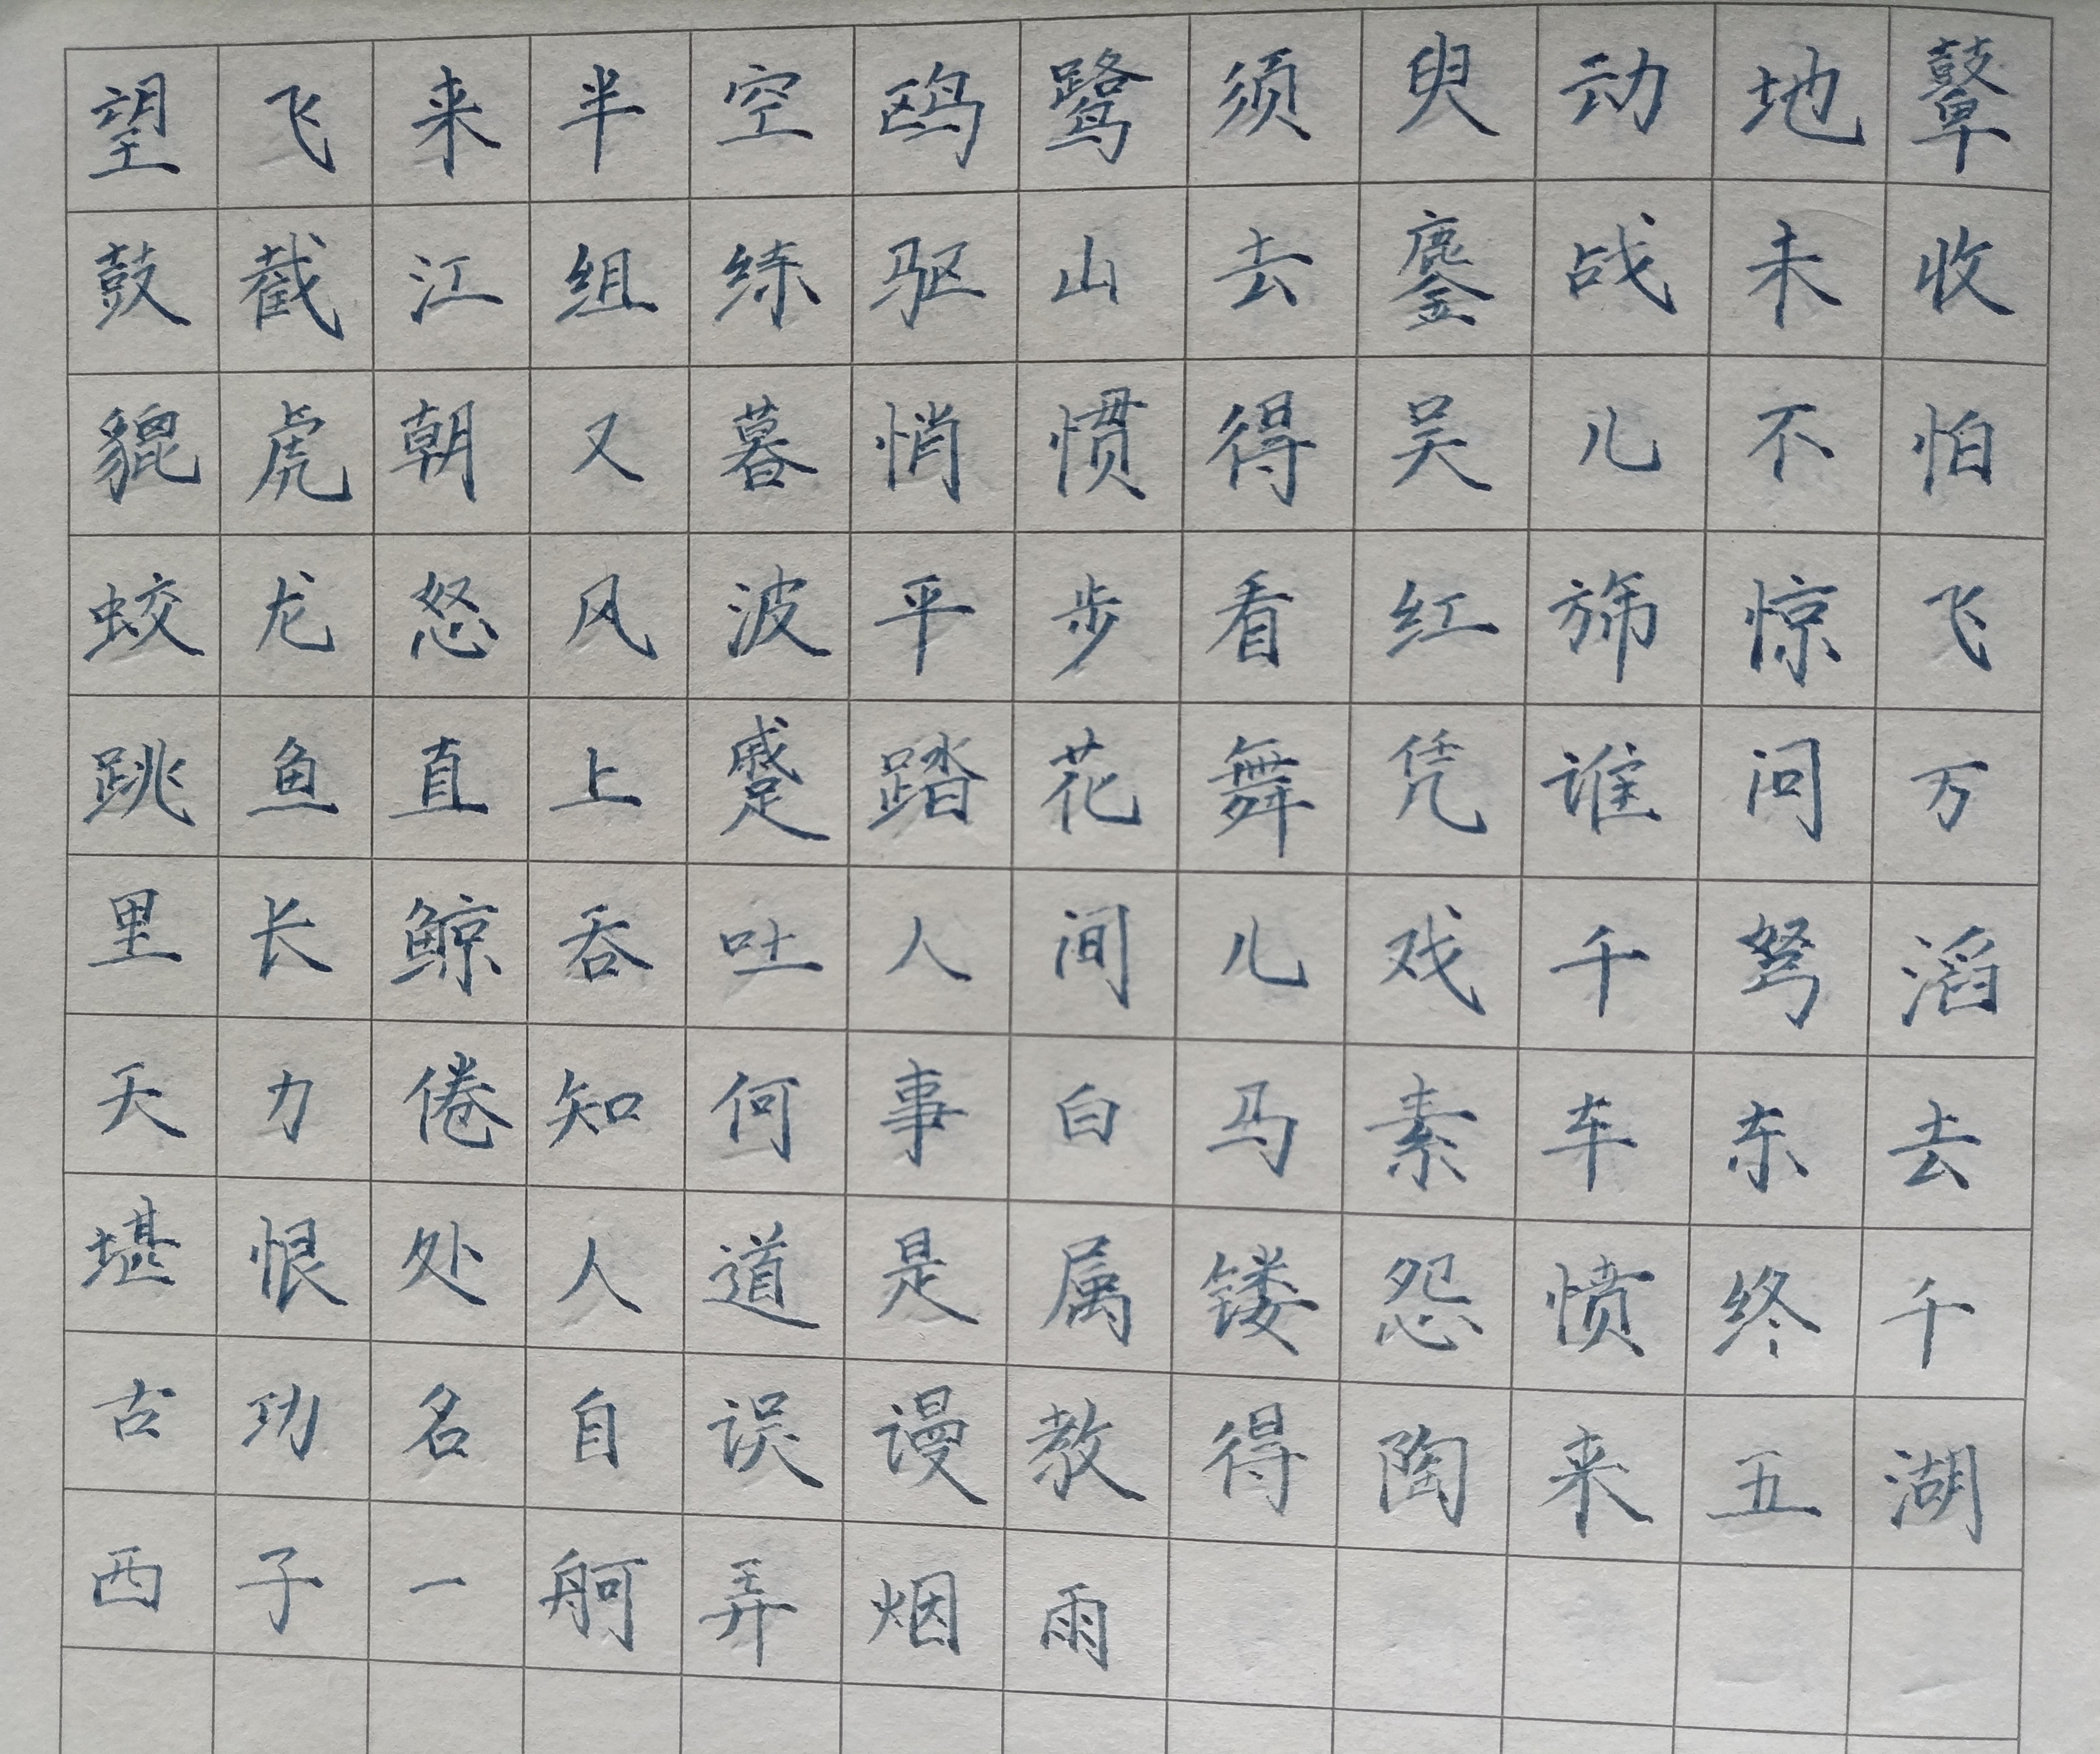 望飞来半空鸥鹭须臾动地鼙
鼓截江组练驱山去鏖战未收
貔虎朝又暮悄惯得吴儿不怕
蛟龙怒风波平步看红旆惊飞
跳鱼直上蹙踏花舞凭谁问万
里长鲸吞吐人间儿戏千弩滔
天力倦知何事白马素车东去
堪恨处人道是属镂怨愤终千
古功名自误谩教得陶来五湖
西子一舸弄烟雨